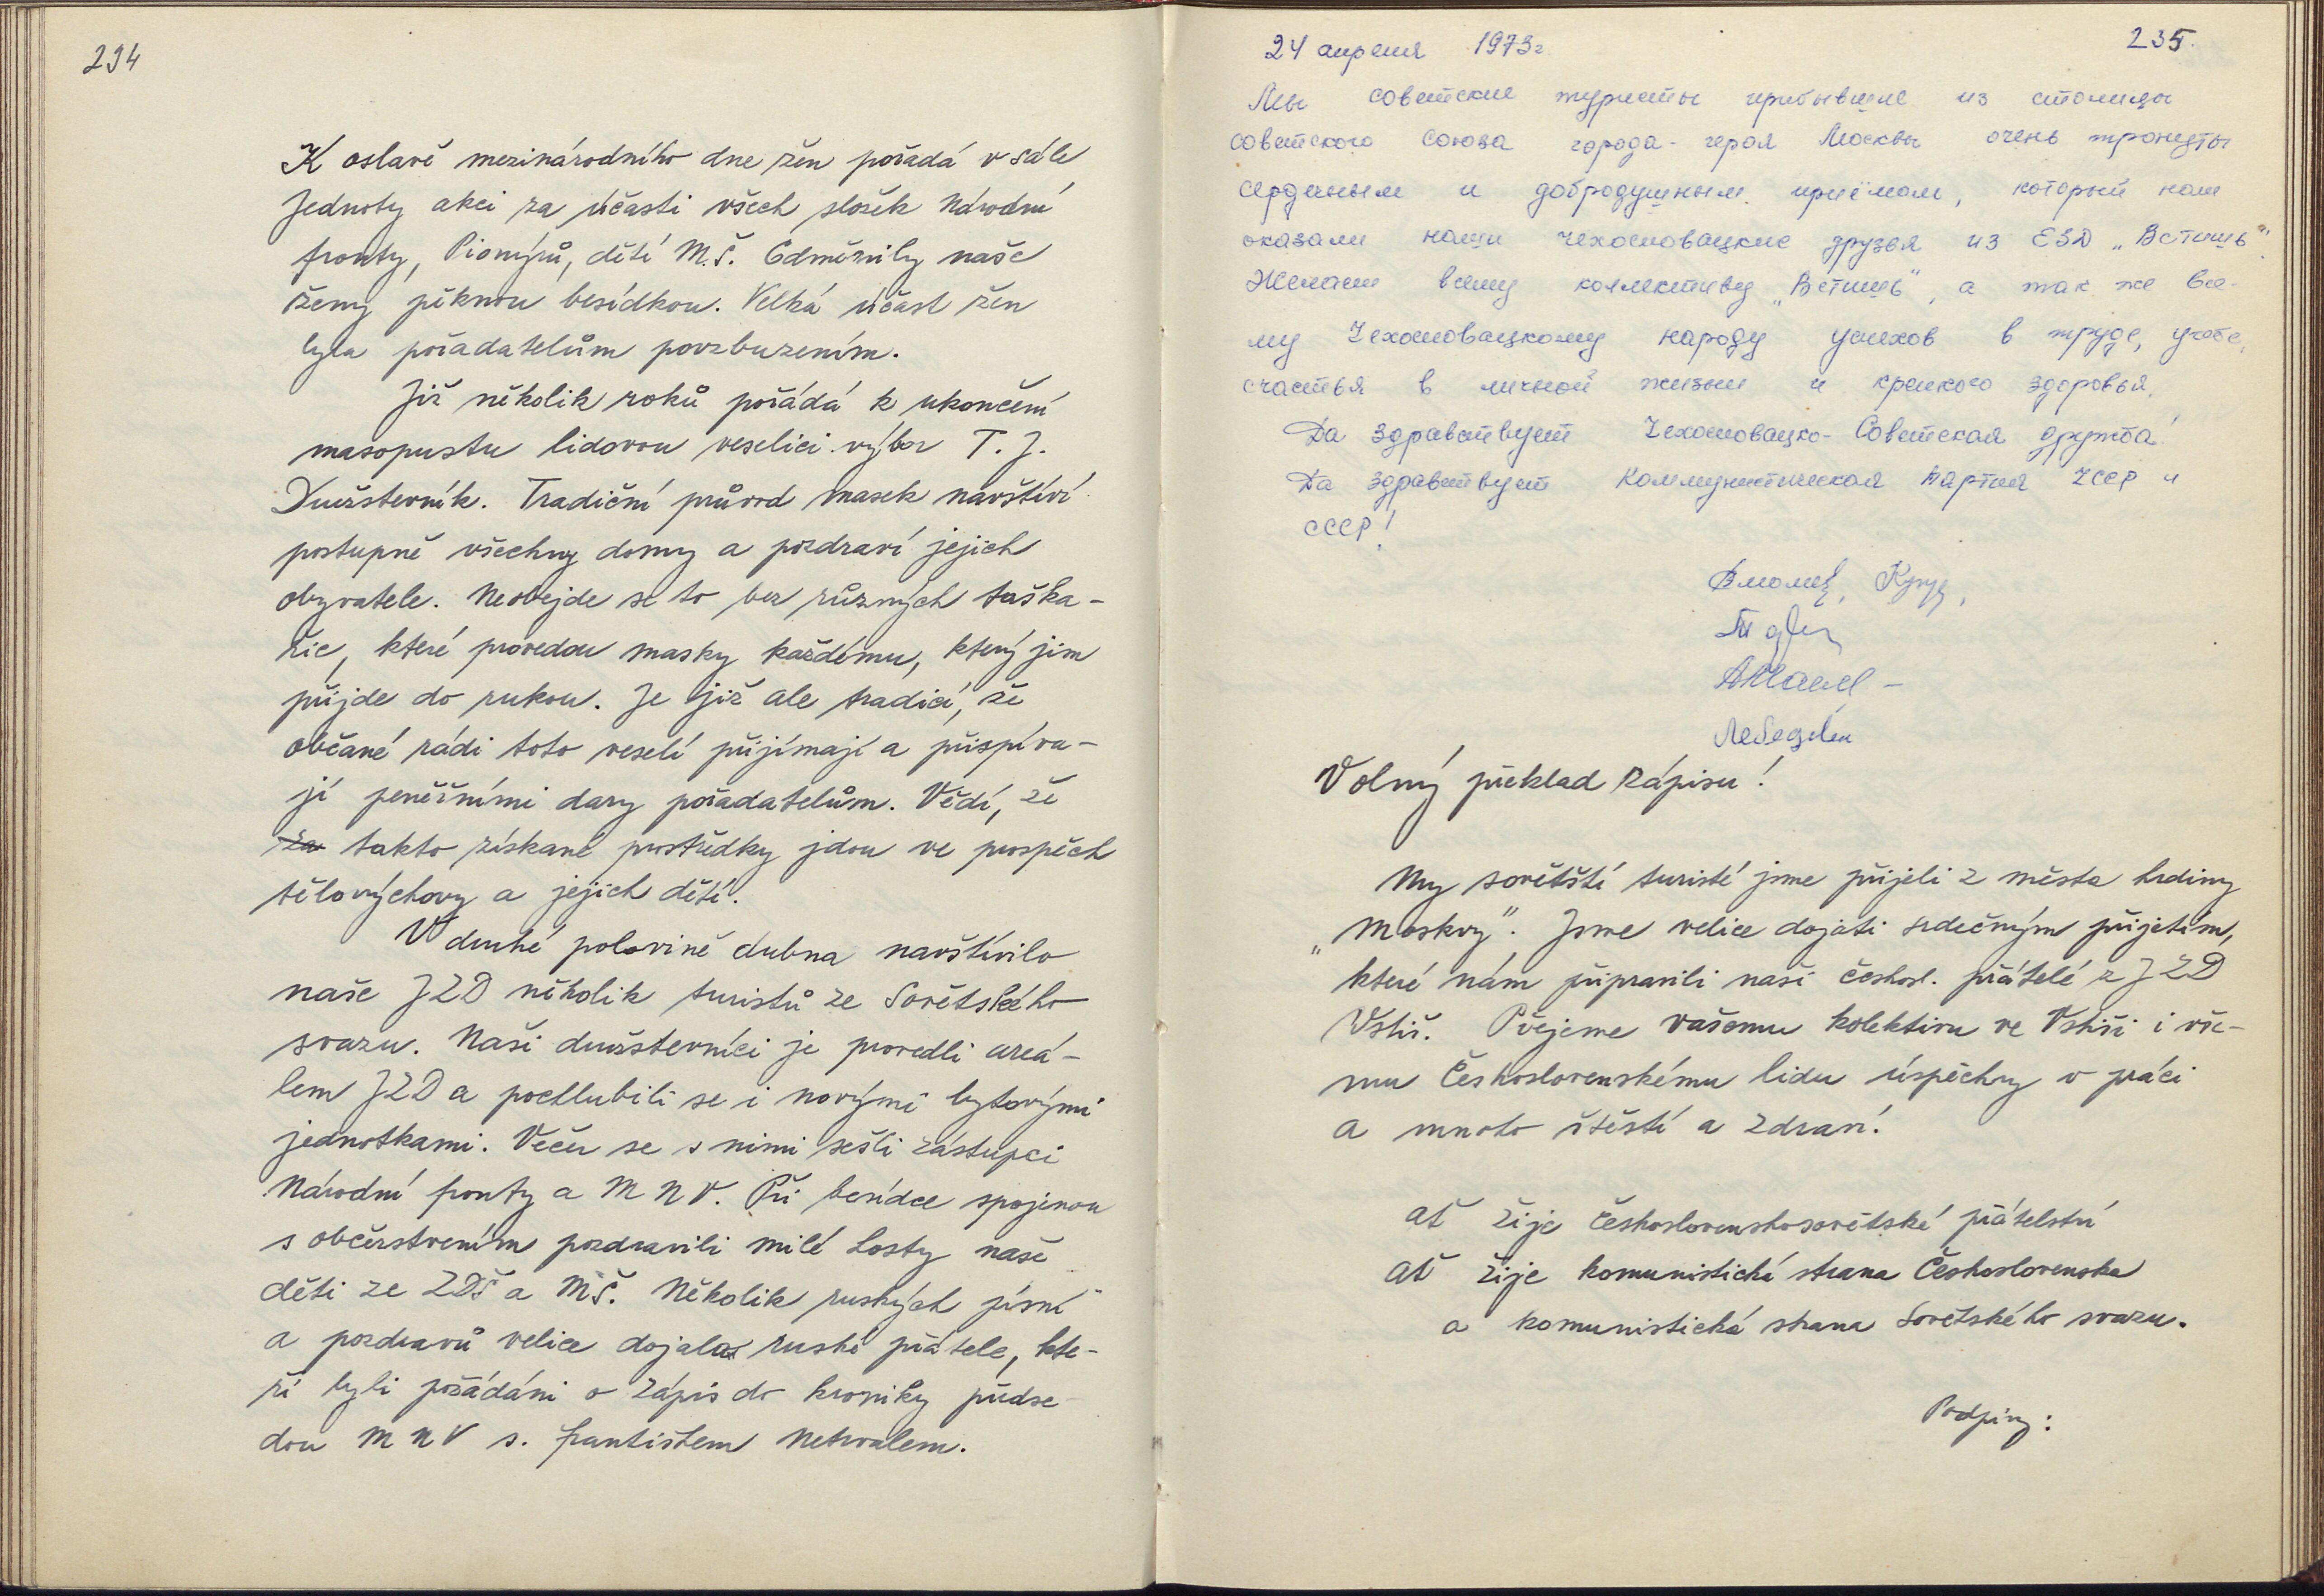 234
K oslavě mezinárodního dne žen pořadá v sále
Jednoty akci za účasti všech složek Národní
fronty, Pionýrů, dětí M.Š. Odměnily naše
ženy pěknou besídkou. Velká účast žen
byla pořadatelům povzbuzením.
Již několik roků pořádá k ukončení
masopustu lidovou veselici výbor T.J.
Družstevník. Tradiční průvod masek navštíví
postupně všechny domy a pozdraví jejich
obyvatele. Neobejde se to bez různých taška-
řic, které provedou masky každému, který jim
přijde do rukou. Je již ale tradicí, že
občané rádi toto veselí přijímají a přispíva-
jí peněžními dary pořadatelům. Vědí, že
za takto získané prostředky jdou ve prospěch
tělovýchovy a jejich dětí.
V druhé polovině dubna navštívilo
naše JZD několik turistů ze Sovětského
svazu. Naši družstevníci je provedli areá-
lem JZD a pochlubili se i novými bytovými
jednotkami. Večer se s nimi sešli zástupci
Národní fronty a MNV. Při besídce spojenou
s občerstvením pozdravili milé hosty naše
děti ze ZDŠ a MŠ. Několik ruských písní
a pozdravů velice dojala ruské přátele, kte-
ří byli požádáni o zápis do kroniky předse-
dou MNV s. Františkem Netrvalem.
235.
24 апреля 1973г
Мы советские туристы прибывшие из столицы
советского Союза города-героя Москвы очень тронуты
сердечным и добродушным приёмом, который нам
оказали наши чехословацкие друзья из ЕЗД „Встишь"
Желаем всему коллективу „Встишь", а так же все-
му Чехословацкому народу успехов в труде, учебе,
счастья в личной жизни и крепкого здоровья.
Да здравствует Чехословацко-Советская дружба!
Да здравствует Коммунистическая Партия ЧССР и
СССР!
Volný překlad zápisu!
My sovětští turisté jsme přijeli z města hrdiny
„Moskvy". Jsme velice dojati srdečným přijetím,
které nám připravili naši českosl. přátelé z JZD
Vstiš. Přejeme vašemu kolektivu ve Vstiši i vše-
mu Československému lidu úspěchy v práci
a mnoho štěstí a zdraví.
Ať žije československosovětské přátelství
Ať žije komunistická strana Československa
a komunistická strana Sovětského svazu.
Podpisy: